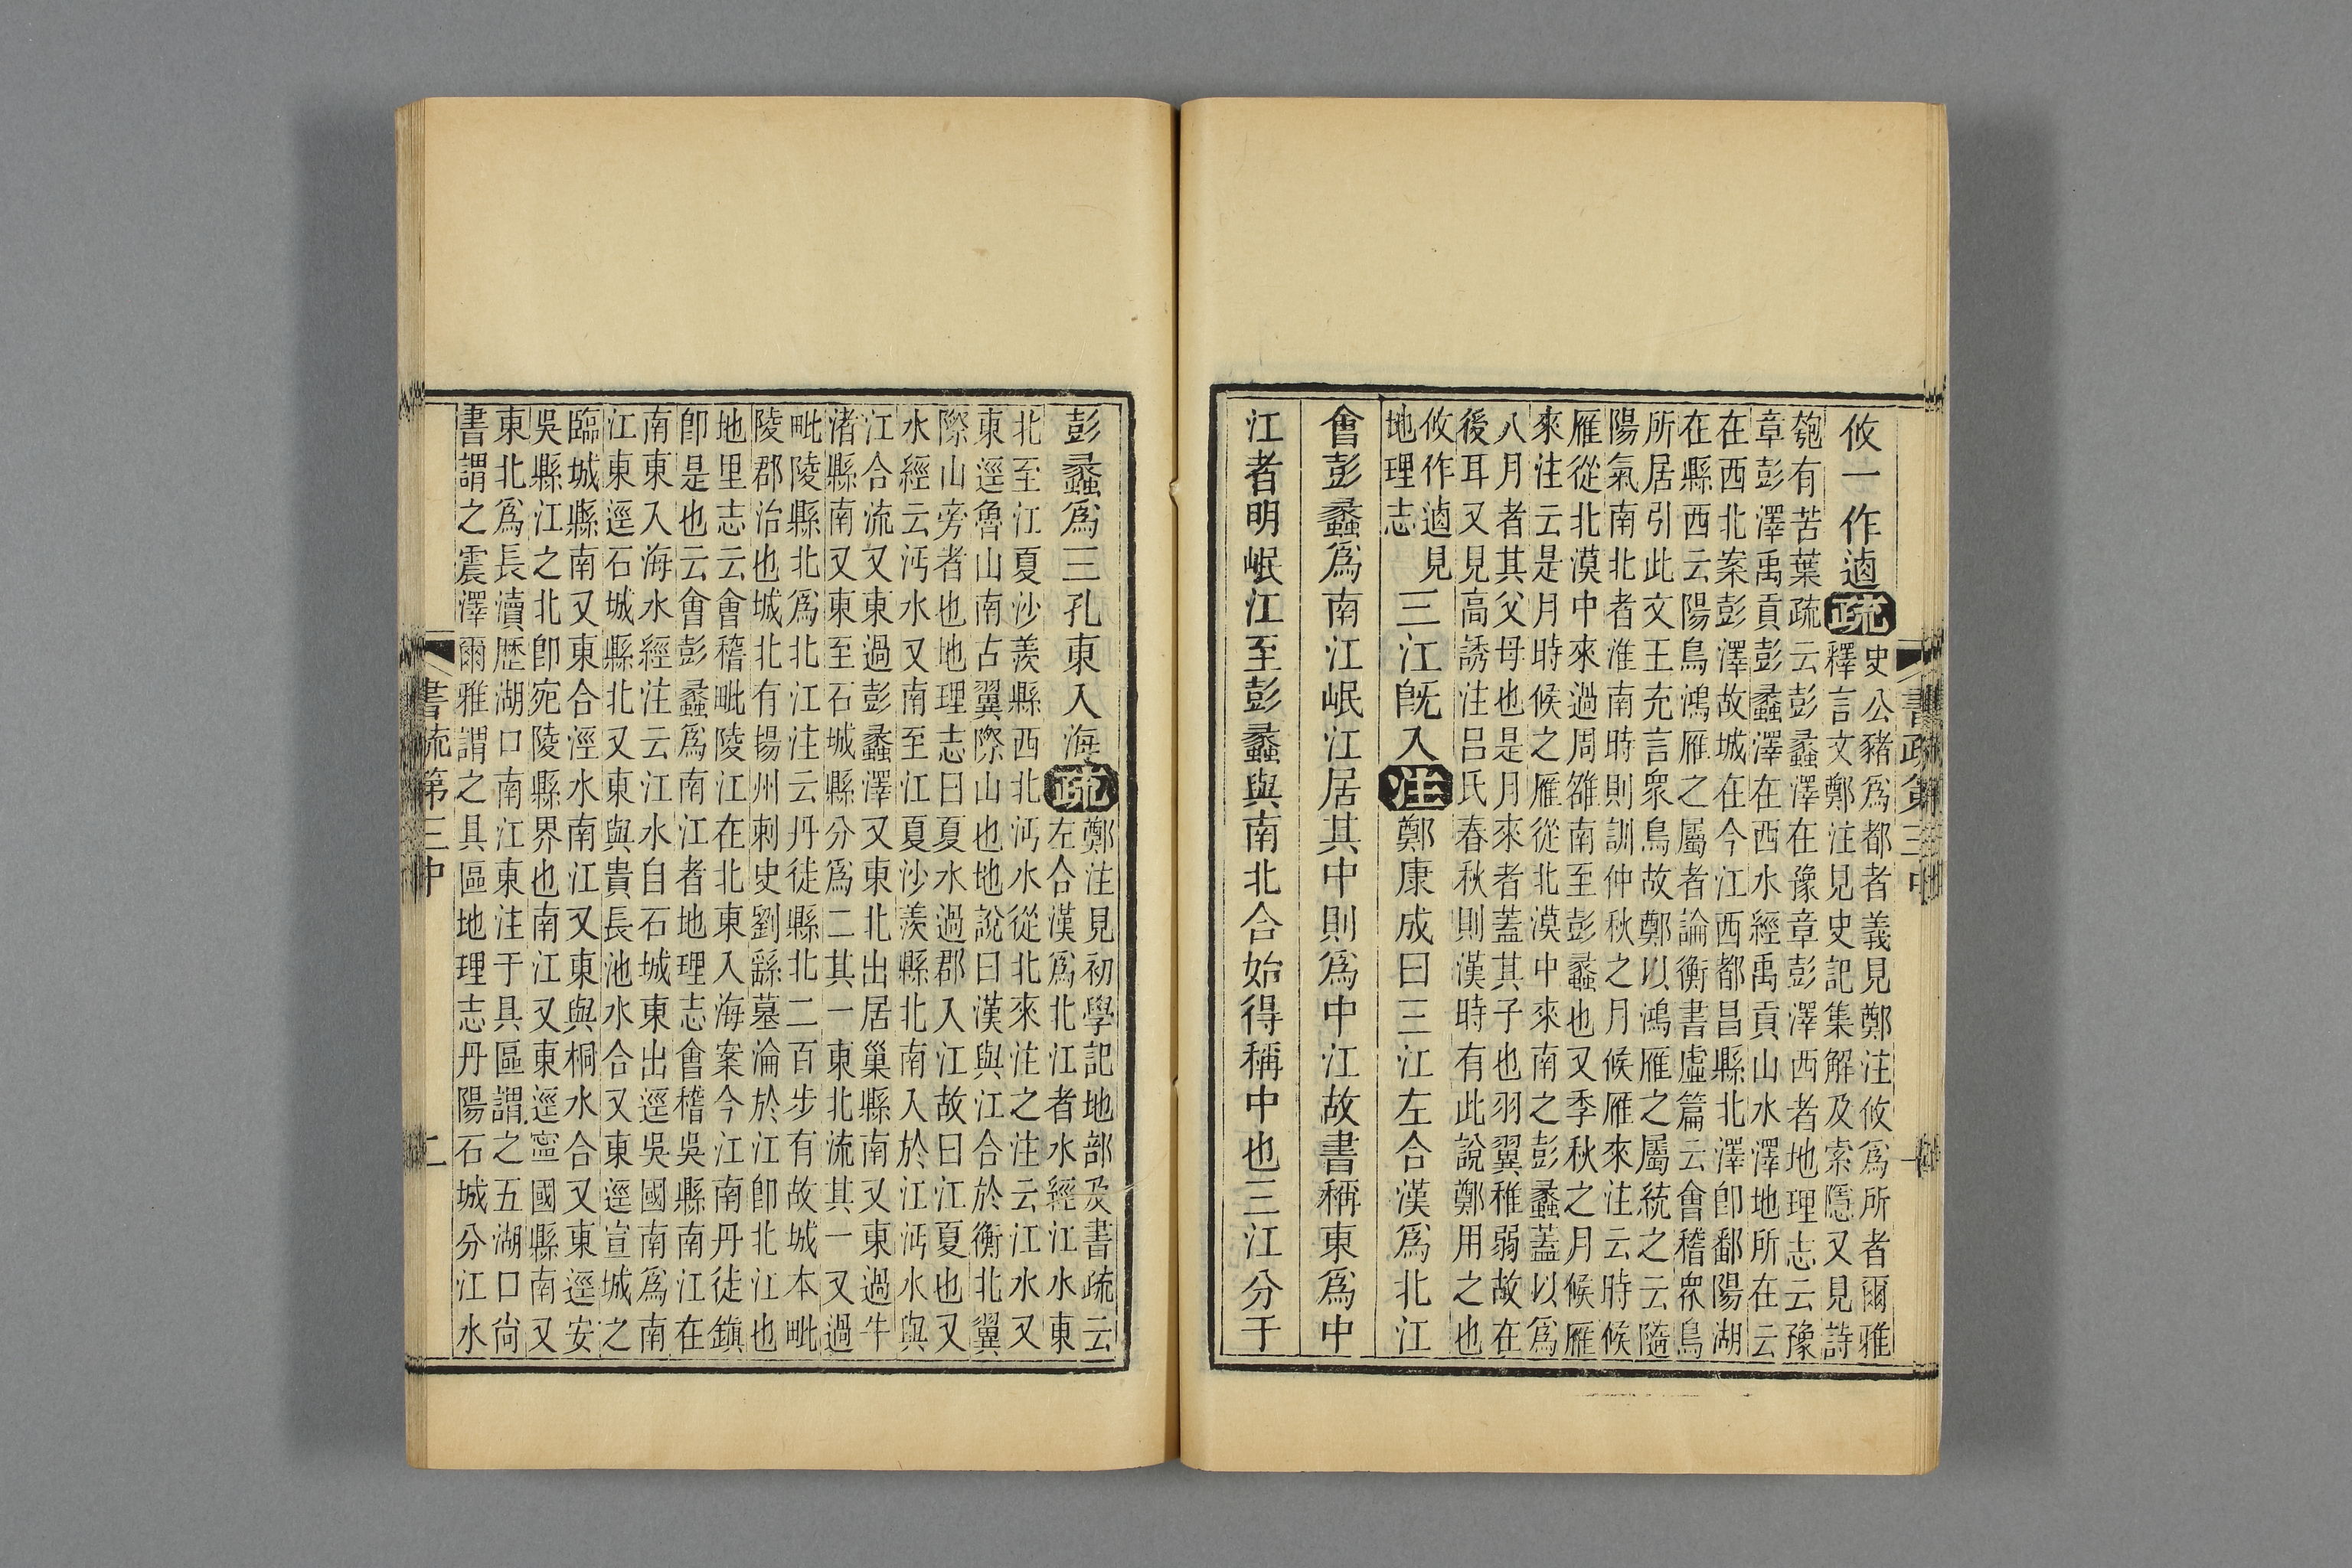 攸一作逌疏
史公豬爲都者義見鄭注攸爲所者爾雅
釋言文鄭注見史記集解及索隱又見詩
匏有苦葉疏云彭蠡澤在豫章彭澤西者地理志云豫
章彭澤禹貢彭蠡澤在西水經禹貢山水澤地所在云
在西北案彭澤故城在今江西都昌縣北澤卽鄱陽湖
在縣西云陽鳥鴻雁之屬者論衡書虛篇云會稽衆鳥
所居引此文王充言衆鳥故鄭以鴻雁之屬統之云隨
陽氣南北者淮南時則訓仲秋之月候雁來注云時候
雁從北漠中來過周雒南至彭蠡也又季秋之月候雁
來注云是月時候之雁從北漠中來南之彭蠡蓋以爲
八月者其父母也是月來者蓋其子也羽翼稚弱故在
後耳又見高誘注呂氏春秋則漢時有此說鄭用之也
攸作逌見
地理志
三江旣入注鄭康成曰三江左合漢爲北江
會彭蠡爲南江岷江居其中則爲中江故書稱東爲中
江者明岷江至彭蠡與南北合始得稱中也三江分于
書疏第三中
彭蠡爲三孔東入海疏
鄭注見初學記地部及書疏云
左合漢爲北江者水經江水東
北至江夏沙羨縣西北沔水從北來注之注云江水又
東逕魯山南古翼際山也地說曰漢與江合於衡北翼
際山旁者也地理志曰夏水過郡入江故曰江夏也又
水經云沔水又南至江夏沙羨縣北南入於江沔水與
江合流又東過彭蠡澤又東北出居巢縣南又東過牛
渚縣南又東至石城縣分爲二其一東北流其一又過
毗陵縣北爲北江注云丹徒縣北二百步有故城本毗
陵郡治也城北有揚州刺史劉繇墓淪於江卽北江也
地里志云會稽毗陵江在北東入海案今江南丹徒鎮
卽是也云會彭蠡爲南江者地理志會稽吳縣南江在
南東入海水經注云江水自石城東出逕吳國南爲南
江東逕石城縣北又東與貴長池水合又東逕宣城之
臨城縣南又東合涇水南江又東與桐水合又東逕安
吳縣江之北卽宛陵縣界也南江又東逕寧國縣南又
東北爲長瀆歷湖口南江東注于具區謂之五湖口尙
書謂之震澤爾雅謂之具區地理志丹陽石城分江水
書疏第三中
二